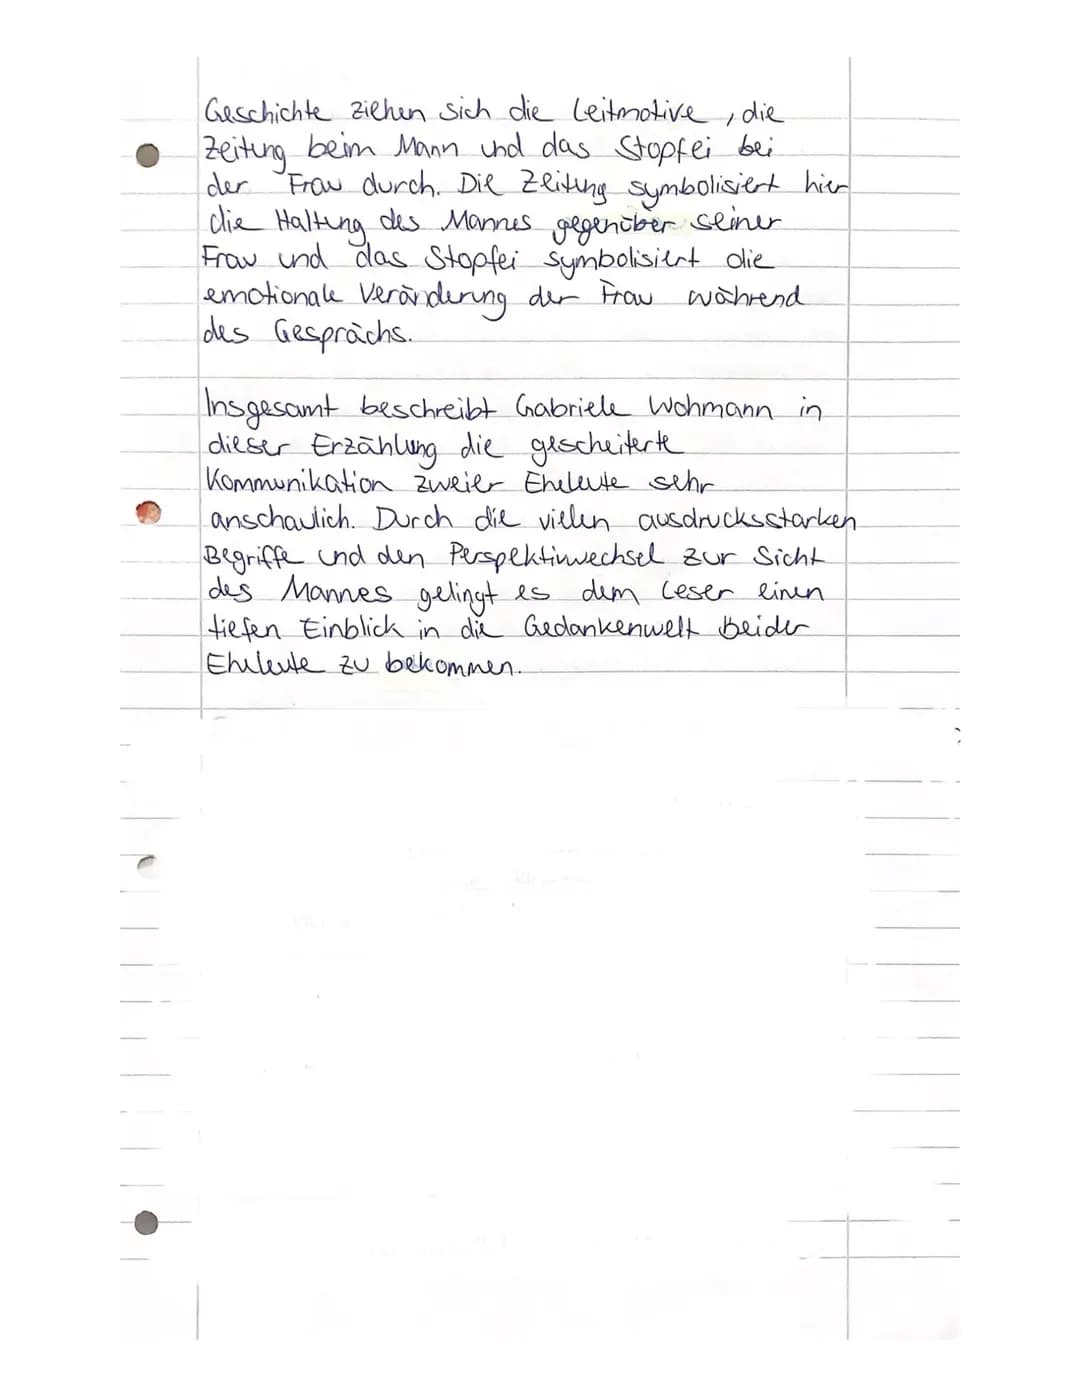 Geschichte ziehen sich die Leitmotive, die
Zeitung beim Mann und das Stopfei bei
der Frau durch. Die Zeitung symbolisiert hier
die Haltung des Mannes gegenüber seiner
Frau und das Stopfei symbolisiert die
emotionale Veränderung der Frau während
des Gesprächs.
Insgesamt beschreibt Gabriele Wohmann in
dieser Erzählung die gescheiterte
Kommunikation zweier Eheleute sehr
anschaulich. Durch die vielen ausdrucksstarken
Begriffe und den Perspektivwechsel zur Sicht
des Mannes gelingt es dem Leser einen
tiefen Einblick in die Gedankenwelt beider
Eheleute zu bekommen.